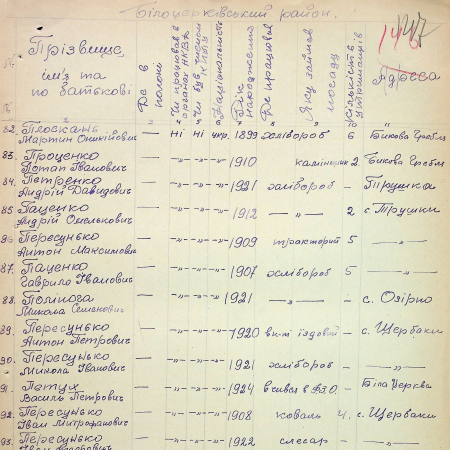 Білоцерківський район.
147
Прізвище,
ім'я та
по батькові
Де в
полоні
Чи працював в
органах НКВД
Національність
Рік
народження
Де працював
Яку займав
посаду
Кількість
утриманців
Адреса
82. Плоскань
Мартин Оникійович — Ні Ні укр. 1899 хлібороб 6 Бикова Гребля
83. Проценко
Потап Іванович — -"- -"- -"- 1910 каменщик 2 Бикова Гребля
84. Петренко
Андрій Давидович — -"- -"- -"- 1921 хлібороб - Трушки
85. Паценко
Андрій Омелькович — -"- -"- -"- 1912 —"— 2 с. Трушки
86. Пересунько
Антон Максимович — -"- -"- -"- 1909 тракторий 5 —"—
87. Паценко
Гаврило Іванович — -"- -"- -"- 1907 хлібороб 5 —"—
88. Полинога
Микола Семенович — -"- -"- -"- 1921 —"— - с. Озірно
89. Пересунько
Антон Петрович — -"- -"- -"- 1920 їздовий - с. Щербаки
90. Пересунько
Микола Іванович — -"- -"- -"- 1921 хлібороб - —"—
91. Петух
Василь Петрович — -"- -"- -"- 1924 Біла Церква
92. Пересунько
Іван Митрофанович — -"- -"- -"- 1908 коваль 4. с. Щербаки
93. Пересунько
— -"- -"- -"- 1922 слесар - —"—